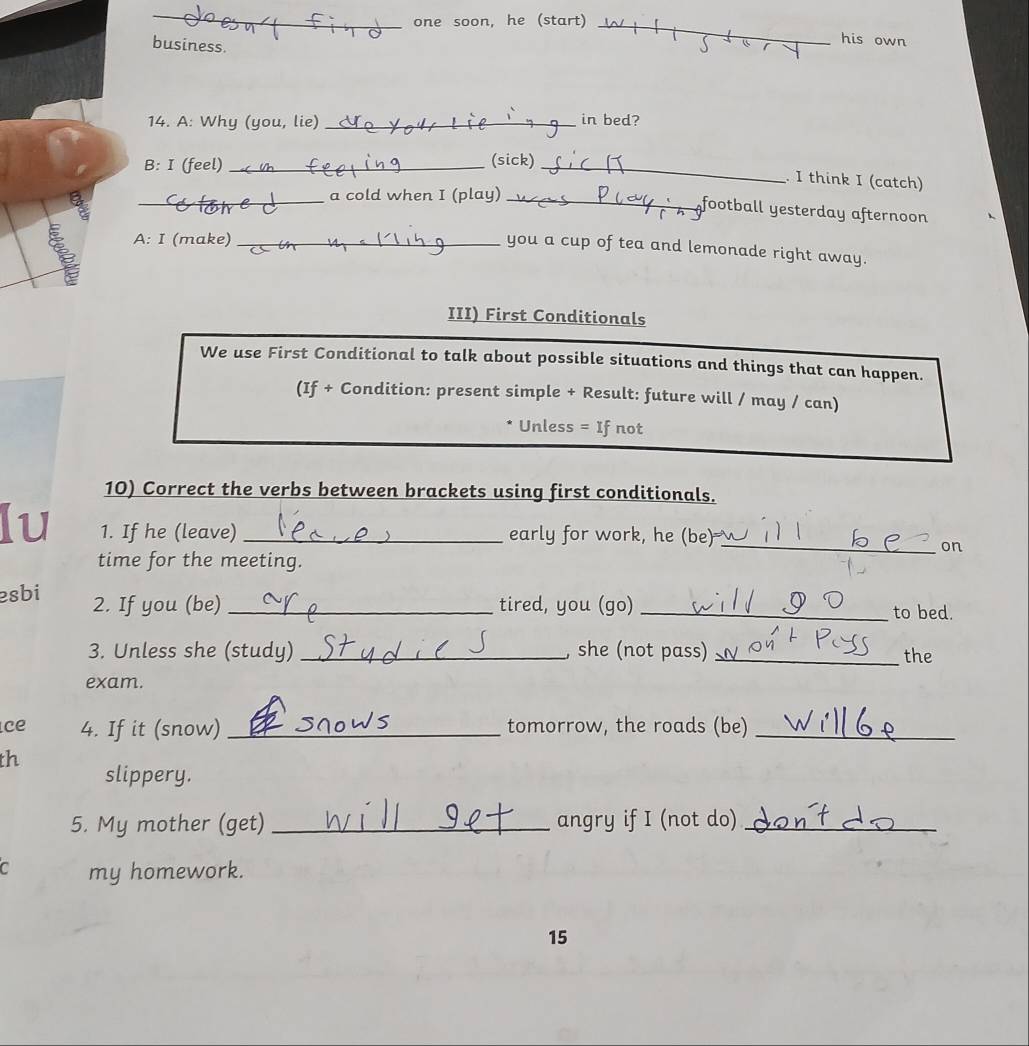 doesn't find one soon, he (start) will start his own
business.
14. A: Why (you, lie) are your lieing in bed?
B: I (feel) am feeling (sick) sick. I think I (catch)
a cold when I (play) was playing football yesterday afternoon
A: I (make) am making you a cup of tea and lemonade right away.
III) First Conditionals
We use First Conditional to talk about possible situations and things that can happen.
(If + Condition: present simple + Result: future will / may / can)
* Unless = If not
10) Correct the verbs between brackets using first conditionals.
1. If he (leave) leaves early for work, he (be) will be on
time for the meeting.
2. If you (be) are tired, you (go) will go to bed.
3. Unless she (study) studies, she (not pass) won't pass the
exam.
4. If it (snow) snows tomorrow, the roads (be) will be
slippery.
5. My mother (get) will get angry if I (not do) don't do
my homework.
15
esbi
ce
th